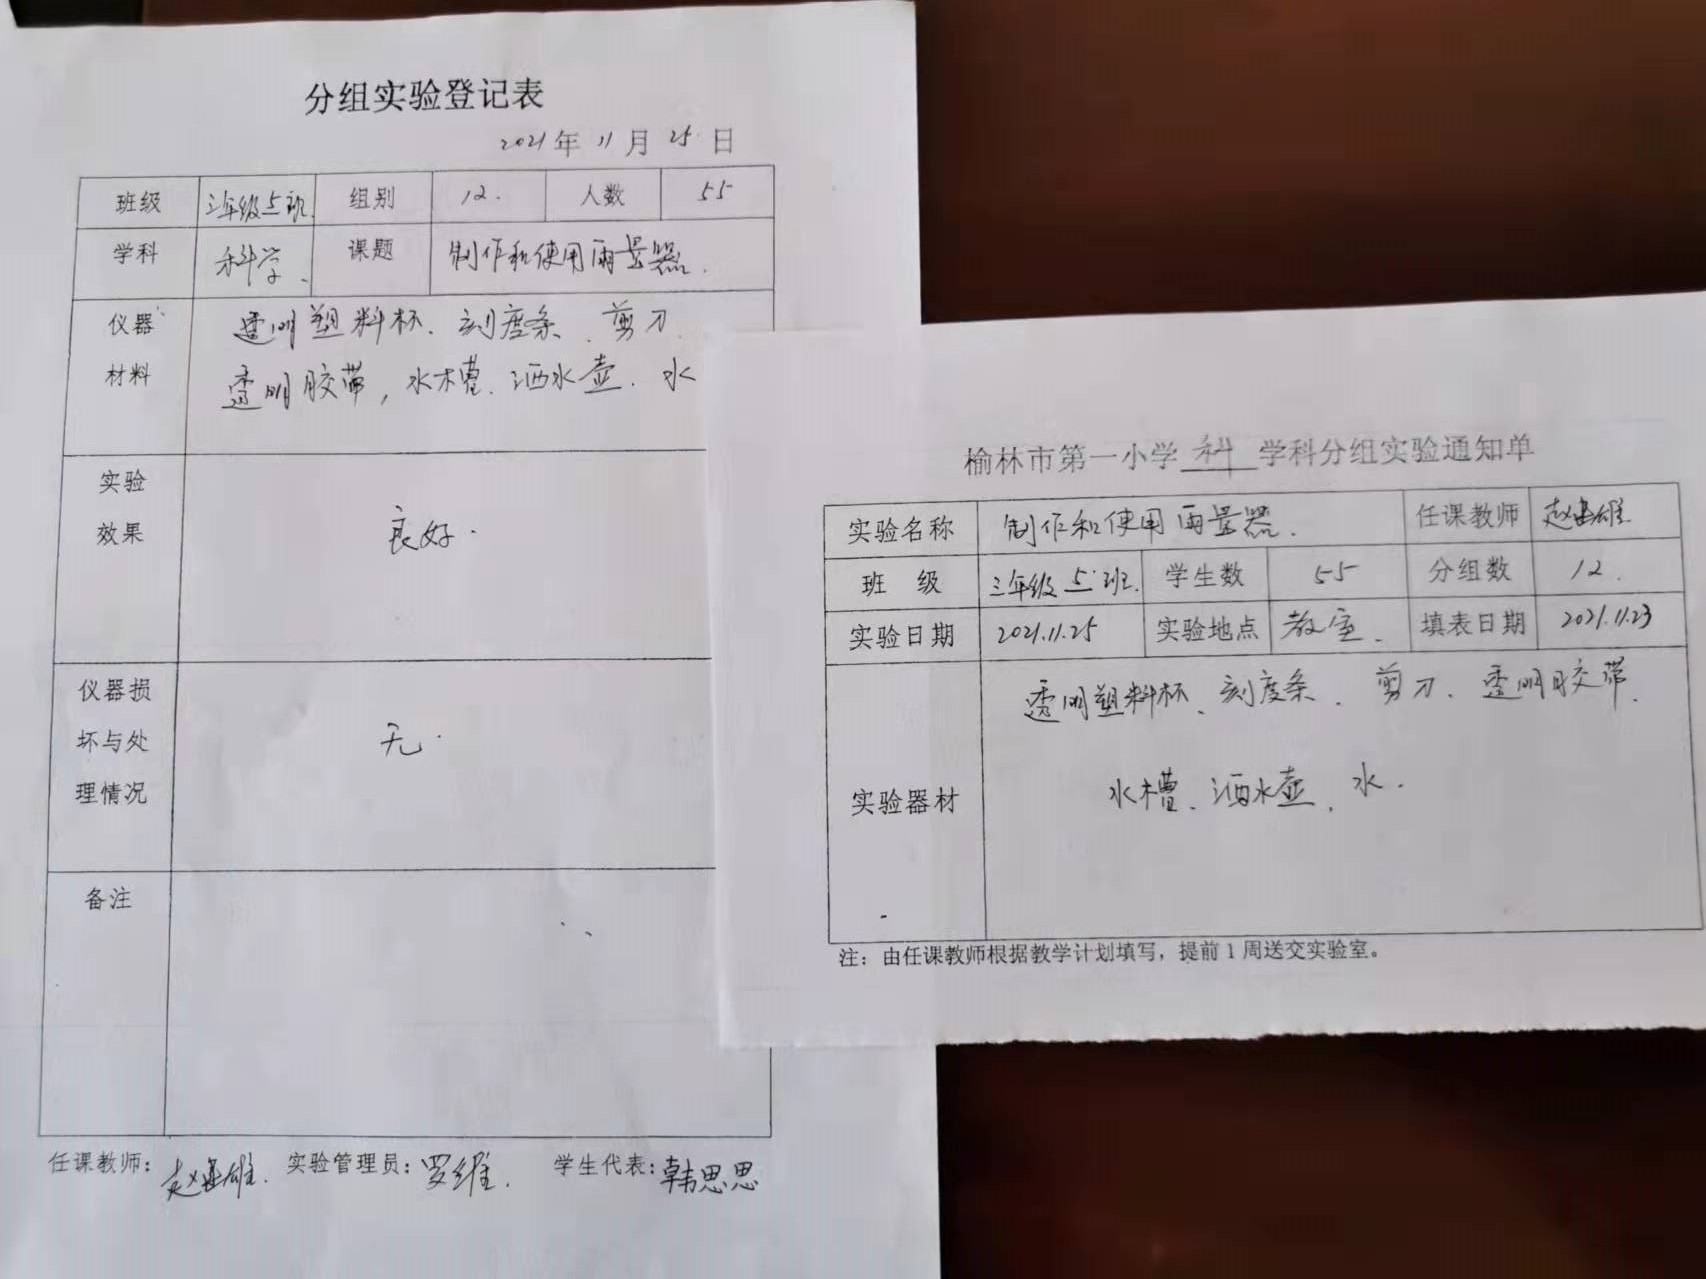 分组实验登记表
2021年 11月 25日
班级 三年级5班. 组别 12. 人数 55
学科 科学. 课题 制作和使用雨量器.
仪器 透明塑料杯、刻度条、剪刀
材料 透明胶带，水槽、洒水壶、水
实验
效果 良好.
仪器损
坏与处 无.
理情况
备注
任课教师: 赵雄. 实验管理员: 罗维. 学生代表: 韩思思
榆林市第一小学 科 学科分组实验通知单
实验名称 制作和使用雨量器. 任课教师 赵雄
班 级 三年级5班. 学生数 55 分组数 12.
实验日期 2021.11.25 实验地点 教室. 填表日期 2021.11.23
透明塑料杯、刻度条、剪刀、透明胶带.
实验器材 水槽、洒水壶、水.
注：由任课教师根据教学计划填写，提前1周送交实验室。